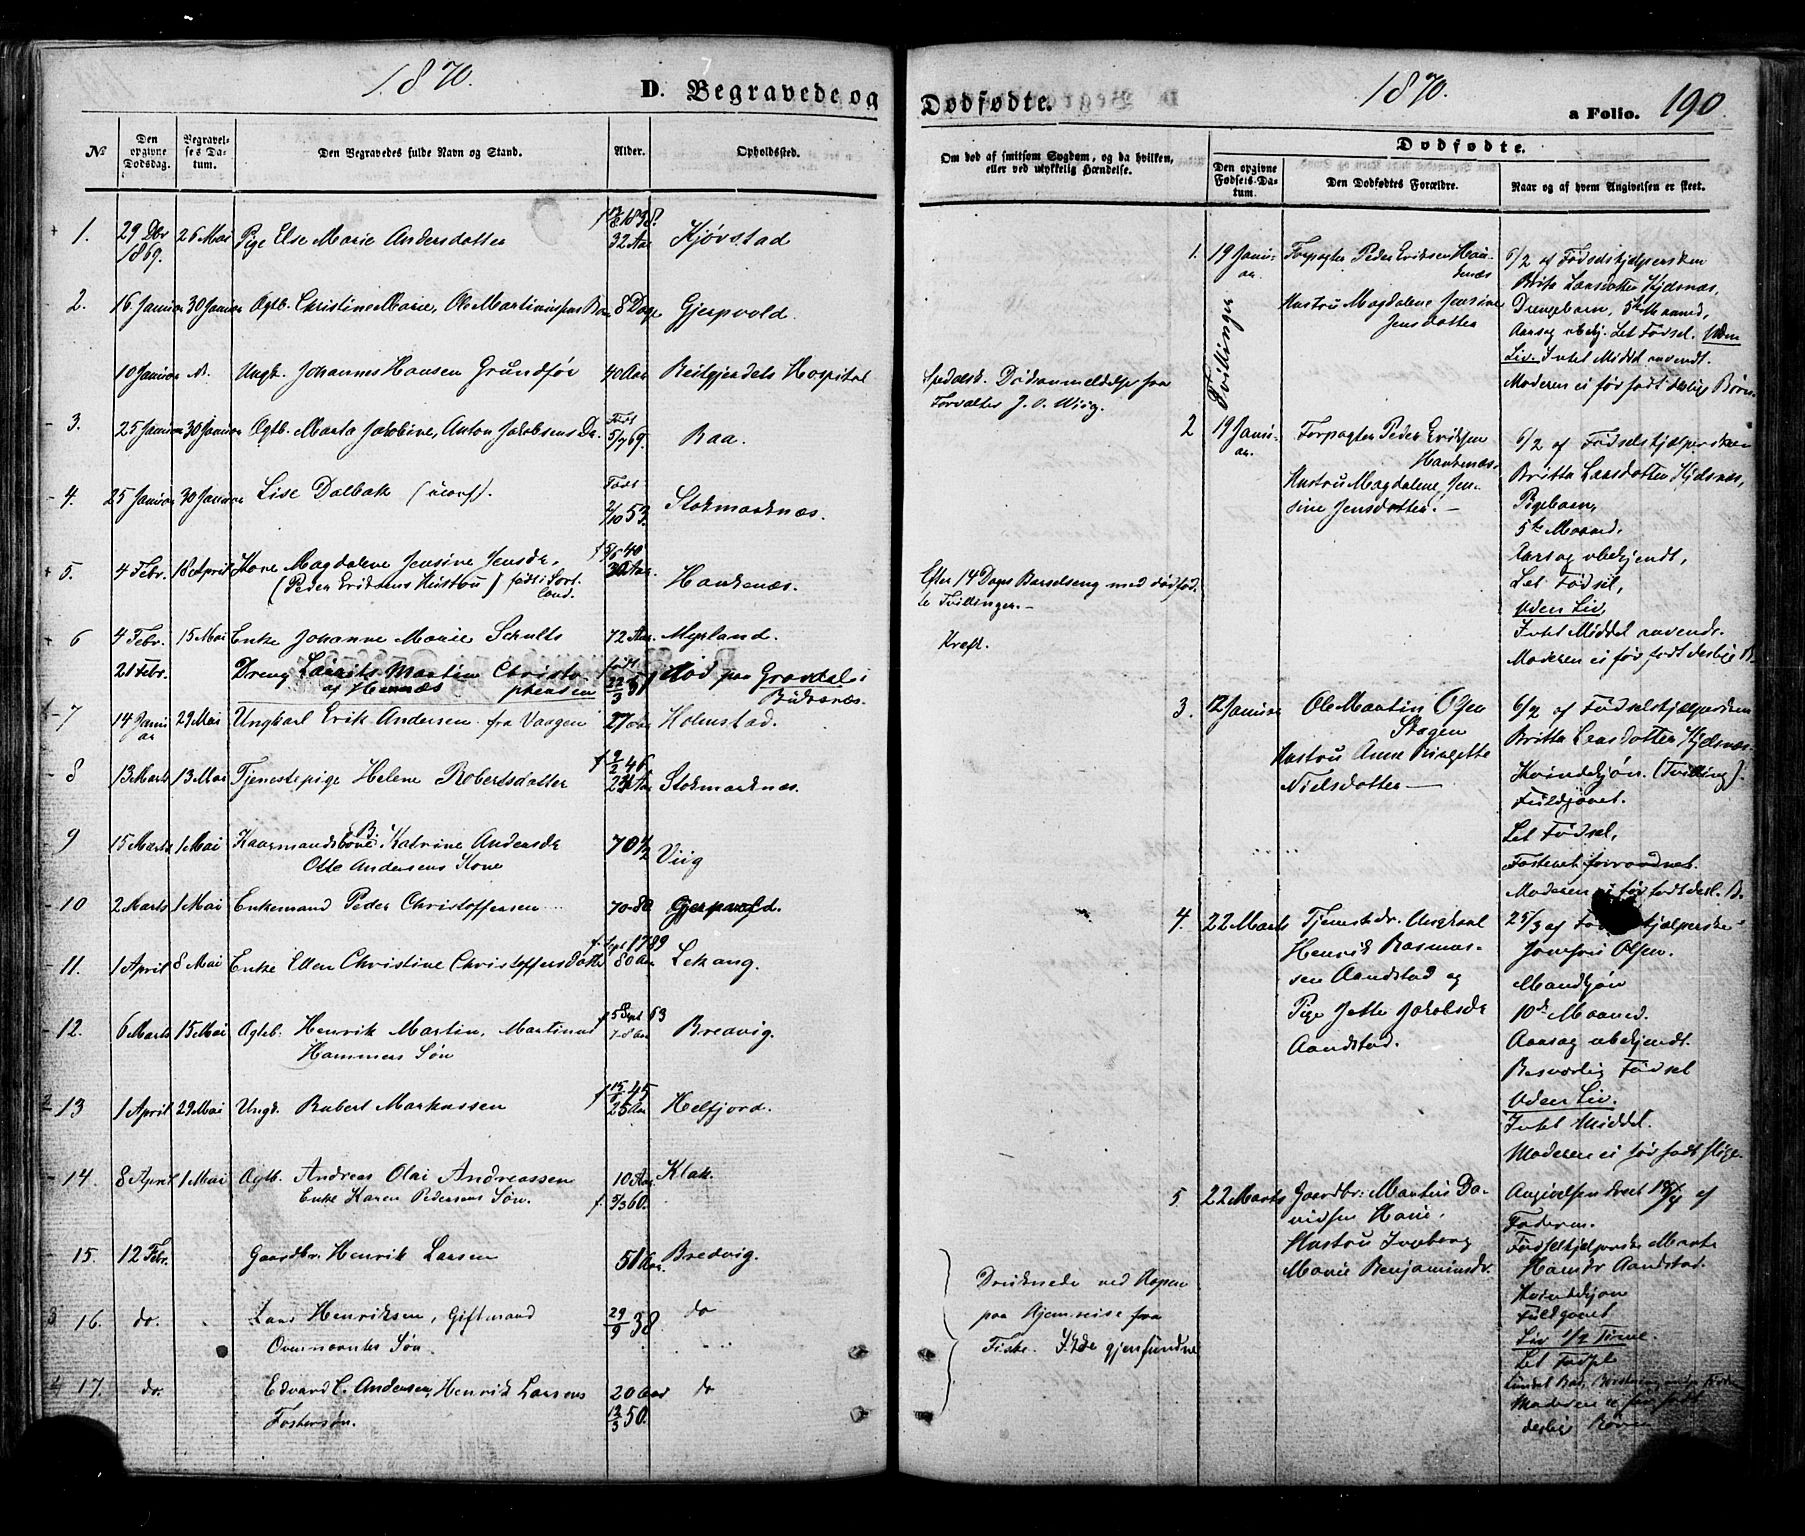 1870.
D. Begravede og
№
Den opgivne Dødsdag.
Begravelses Datum.
Den Begravedes fulde Navn og Stand.
Alder.
Opholdssted.
1. 29 Dbr 26 Mai Pige Else Marie Andersdatter 32 Aar Kjørstad
1869.
2. 16 Januar 30 Januar Ægtb. Christine Marie, Ole Martinussens Ba 8 Dage Gjerpvold.
10 Januar Ungk. Johannes Hansen Grundfør 40 Aar Reitgjerdets Hospital
3. 25 Januar 30 Januar Ægtb. Marta Jakobine, Anton Jakobsens Da. Født 5/7 69. Raa.
4. 25 Januar 30 Januar Lise Dalbak (uconf). Født 2/10 53. Stokmarknæs.
5. 4 Febr. 18 April Kone Magdalene Jensine Jensdr. 5/6 40 Haukenæs.
(Peder Eriksens Hustru) født i Sortland.
6 4 Febr. 15 Mai Enke Johanne Marie Schults 72 Aar Myrland.
21 Febr. Dreng Laurits Martin Christophersen født 22/3 Død paa Gravdal i
af Hennæs Buksnæs.
7 14 Januar 29 Mai Ungkarl Erik Andersen fra Vaagen 27 Aar Holmstad.
8 13 Marts 13 Mai Tjenestepige Helene Robertsdatter f 9/2 46 Stokmarknæs.
9 15 Marts 1 Mai Kaarmandskone B. Katrine Andersdr 70 1/2 Viig
Otte Andersens Kone
10 2 Marts 1 Mai Enkemand Peder Christoffersen 70-80 Gjerpvold.
11. 1 April 8 Mai Enke Ellen Christine Christoffersdatter f. Sept 1789 80 Aar Lekang.
12. 6 Marts 15 Mai Ægteb. Henrik Martin, Martinus f 5 Sept 63 Bredvig.
Hammers Søn
13 1 April 29 Mai Ungk. Robert Markussen 25 Aar Helfjord.
14. 8 April 1 Mai Ægtb. Andreas Olai Andreassen 10 Aar Klak.
Enke Karen Pedersens Søn. f 9/3 60.
15. 12 Febr. Gaardbr. Henrik Larsen 51 Aar Bredvig.
16. do. Lars Henriksen, Giftmand 29/9 38 do
Ovennævntes Søn.
17. do. Edvard C. Andersen, Henrik Larsens 20 Aar do
Fostersøn. 12/3 50.
Dødfødte.
1870.
a Folio. 190
Om død af smitsom Sygdom, og da hvilken, eller ved ulykkelig Hændelse.
Dødfødte.
Den opgivne Fødsels-Datum.
Den Dødfødtes Forældre.
Naar og af hvem Angivelsen er skeet.
Spedalsk. Dødsanmeldelse fra
Forvalter J. O. Wiig.
Efter 14 Dages Barselseng med dødfødte Tvillinger.—
Kræft.
Druknede ved Hopen
paa Hjemreise fra
Fiske. Ikke gjenfundne
Tvillinger
1. 19 Januar. Forpagter Peder Eriksen Haukenæs
Hustru Magdalene Jensine
Jensdatter
6/2 af Fødselshjælpersken
Brita Larsdatter Kjdsnæs,
Drengebarn, 5te Maaned,
Aarsag ubekj. Let Fødsel. Uden
Liv. Intet Middel anvendt.
Moderen ei før født deslige Børn.
2 19 Januar. Forpagter Peder Eriksen
Haukenæs.
Hustru Magdalene Jensine Jensdatter.—
6/2 af Fødselshjælpersken
Britta Larsdatter Kjdsnæs,
Pigebarn,
5te Maaned,
Aarsag ubekjendt,
Let Fødsel,
Uden Liv,
Intet Middel anvendt.
Moderen ei før født deslige B.
3. 12 Januar Ole Martin Olsen
Skogen
Hustru Anne Birgitte
Nielsdatter —
6/2 af Fødselshjælpersken
Britta Larsdatter Kjdsnæs
Kvindekjøn. (Tvilling).
Fuldbaaret.
Let Fødsel,
Fosteret forraadnet.
Moderen ei før født desl. B.
4. 22 Marts Tjenestedr. Ungkarl
Henrik Rasmussen Aandstad og
Pige Jette Jakobsdr
Aandstad.
25/3 af Fødselshjælperske
Jomfru Olsen.
Mandkjøn
10de Maaned.
Aarsag ubekjendt.
Besværlig Fødsel
Uden Liv.
Intet Middel.
Moderen ei før født slige
5. 22 Marts Gaardbr. Martus Davidsen
Hustru Ingeborg
Marie Benjaminsdr.
Angivelsen skeet af
Faderen.
Fødselhjelperske Marte
Hansdr Aandstad.
Kvindekjøn
Fuldbaaret
Liv 1/2 Time.
Let Fødsel
Moderen ei før født
deslige Børn